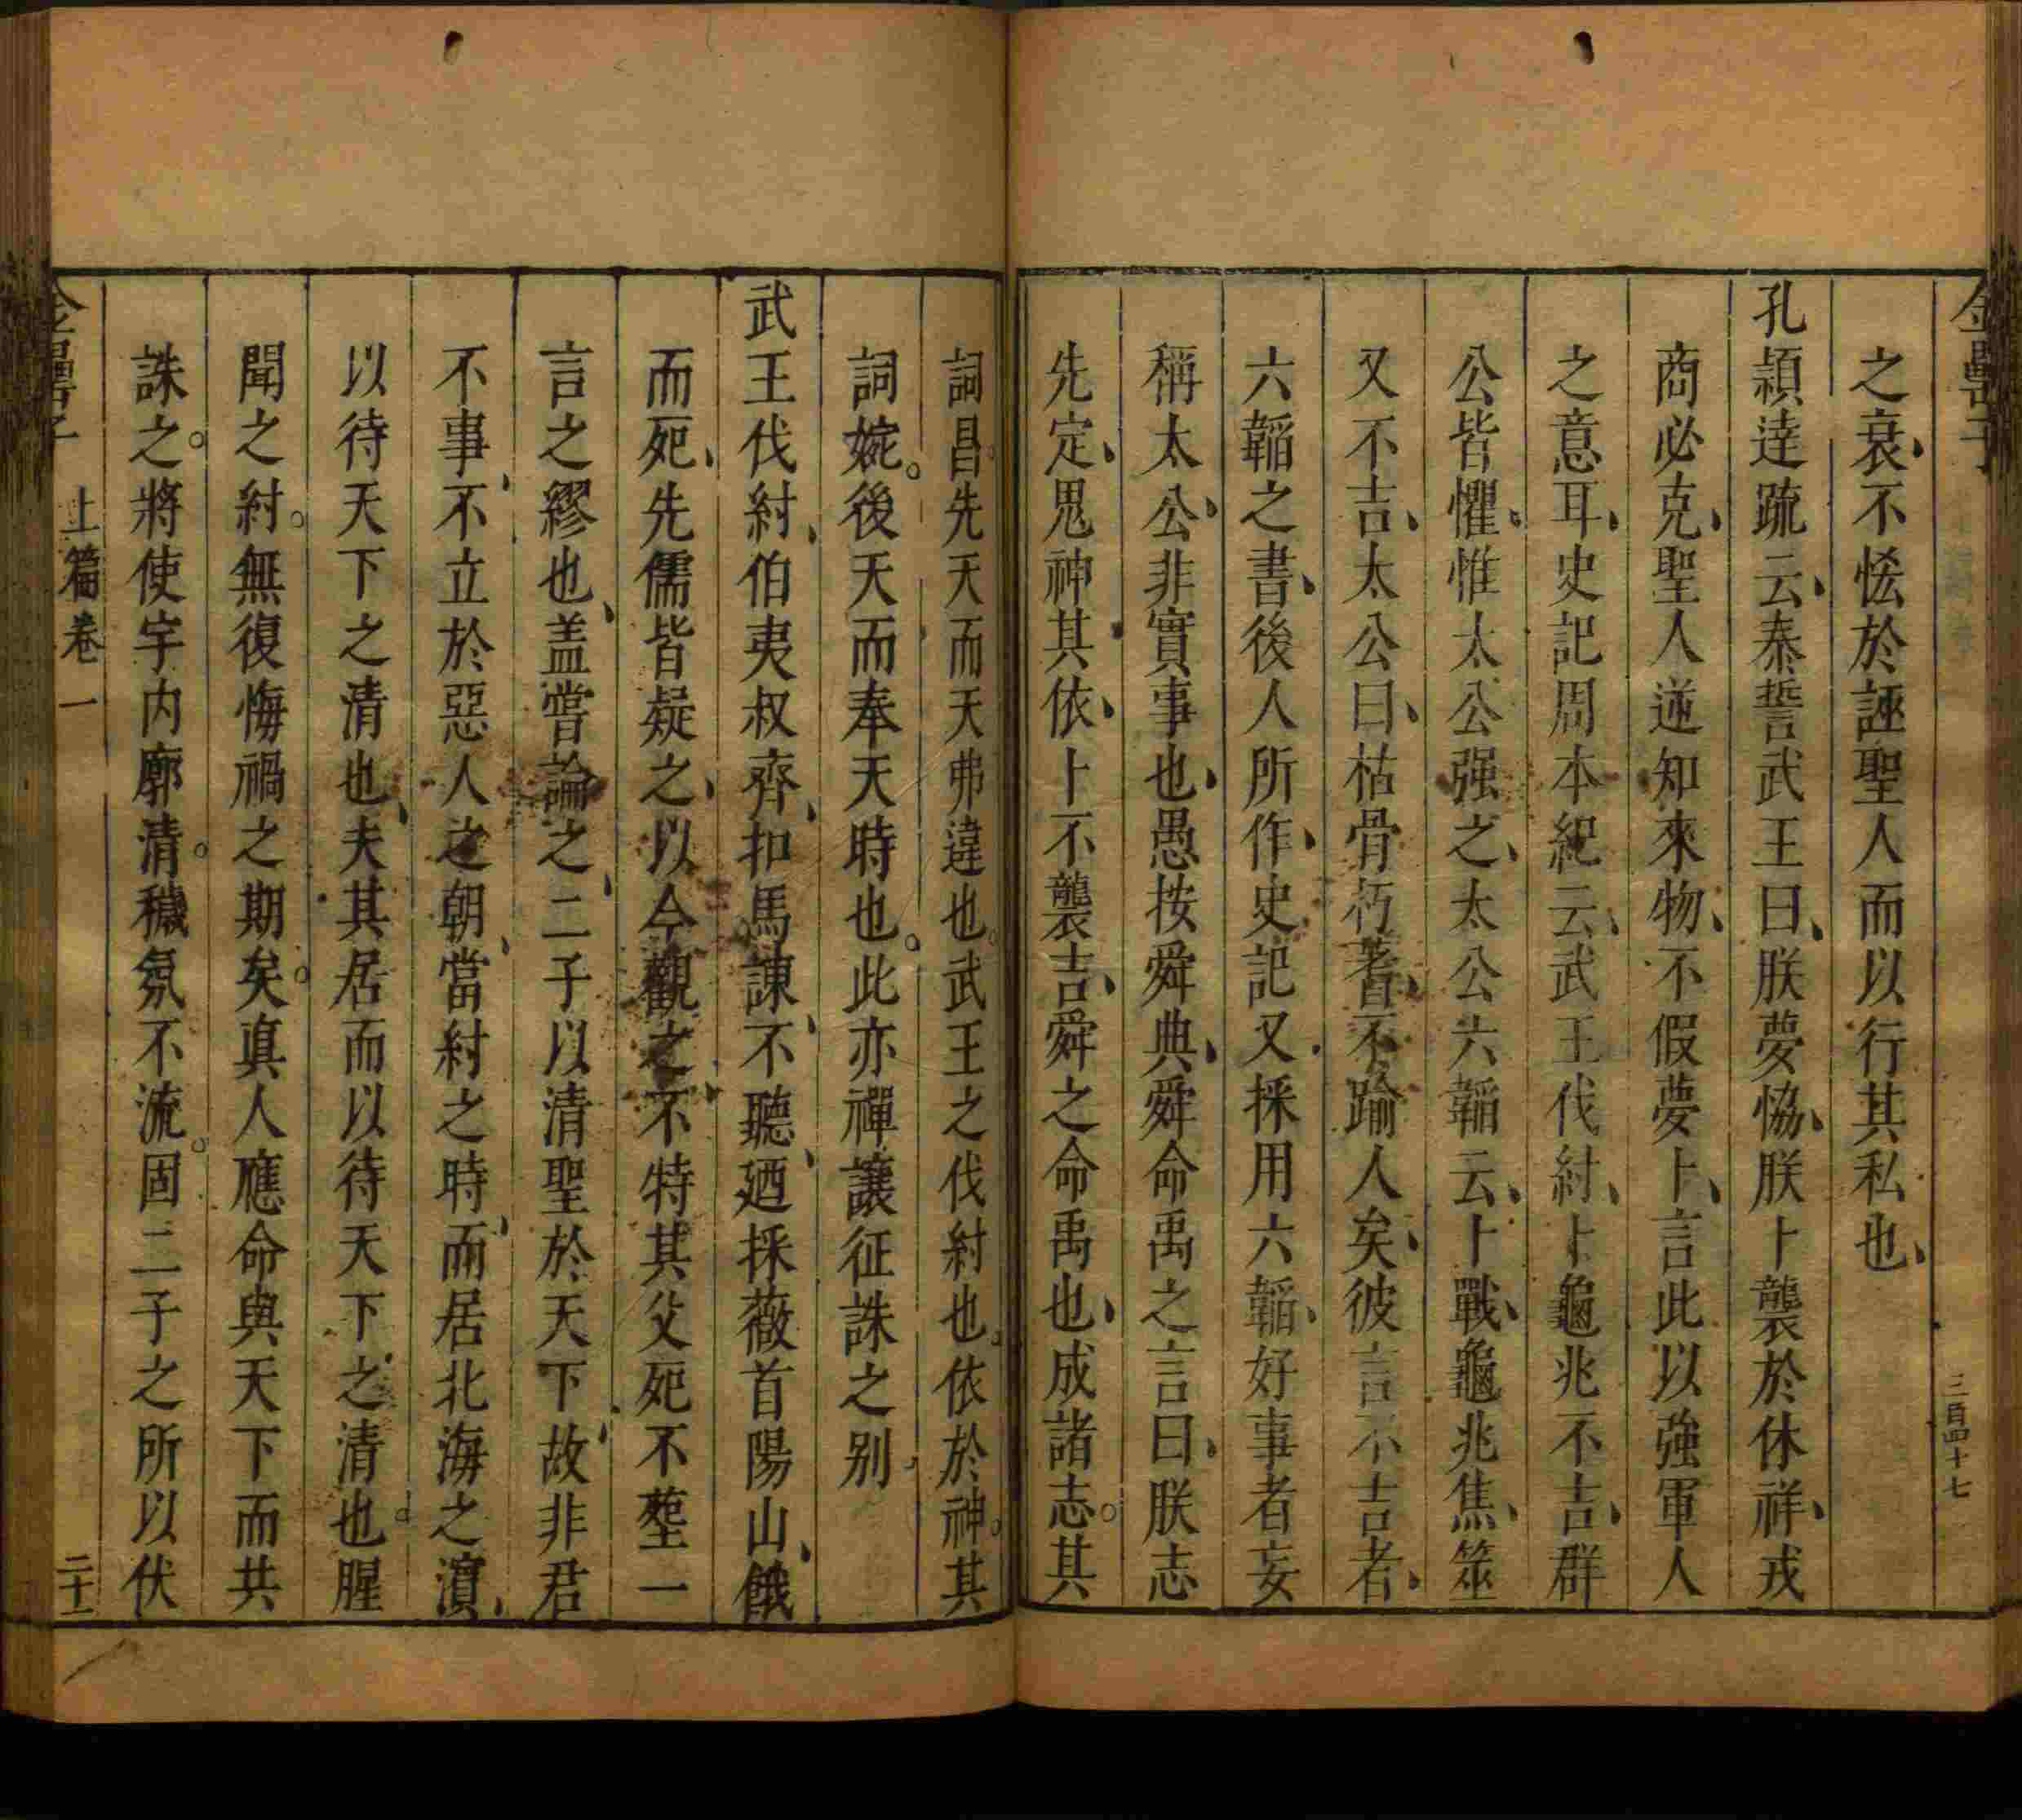 金罍子
三百四十七
之衰、不恡於誣聖人而以行其私也、
孔頴達疏云、泰誓武王曰、朕夢恊、朕卜襲於休祥、戎
商必克、聖人逆知來物、不假夢卜、言此以強軍人
之意耳、史記周本紀云、武王伐紂、卜龜兆不吉、群
公皆懼、惟太公强之、太公六韜云、卜戰、龜兆焦、筮
又不吉、太公曰、枯骨朽蓍、不踰人矣、彼言不吉者、
六韜之書、後人所作、史記又採用六韜、好事者妄
稱太公、非實事也、愚按舜典、舜命禹之言曰、朕志
先定、鬼神其依、卜不襲吉、舜之命禹也、成諸志。其
詞昌。先天而天弗違也。武王之伐紂也。依於神。其
詞婉。後天而奉天時也。此亦禪讓征誅之别、
武王伐紂、伯夷叔齊、扣馬諌、不聽、廼採薇首陽山、餓
而死、先儒皆疑之、以今觀之、不特其父死不塟一
言之繆也、盖嘗論之、二子以清聖於天下、故非君
不事、不立於惡人之朝、當紂之時、而居北海之濵、
以待天下之清也、夫其居而以待天下之清也。腥
聞之紂。無復悔禍之期矣。真人應命與天下而共
誅之。將使宇内廓清。穢氛不流。固二子之所以伏
金罍子
上篇卷一
二十一